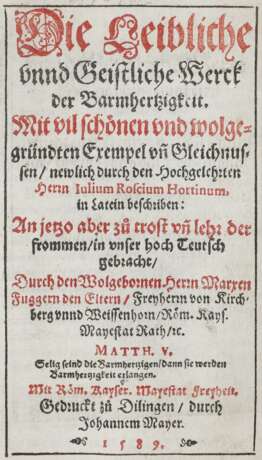 Die Leibliche
vnnd Geistliche Werck
der Barmhertzigkeit.
Mit vil schönen vnd wolge-
gründten Exempel vñ Gleichnus-
sen / newlich durch den Hochgelehrten
Herrn Iulium Roscium Hortinum,
in Latein beschriben:
An jetzo aber zů trost vñ lehr der
frommen / in vnser hoch Teutsch
gebracht /
Durch den Wolgebornen Herrn Marxen
Fuggern den Eltern / Freyherrn von Kirch-
berg vnnd Weissenhorn / Röm. Kays.
Mayestat Rath / ꝛc.
MATTH. V.
Selig seind die Barmhertzigen / dann sie werden
Barmhertzigkeit erlangen.
Mit Röm. Kayser. Mayestat Freyheit.
Gedruckt zů Dilingen / durch
Johannem Mayer.
1589.